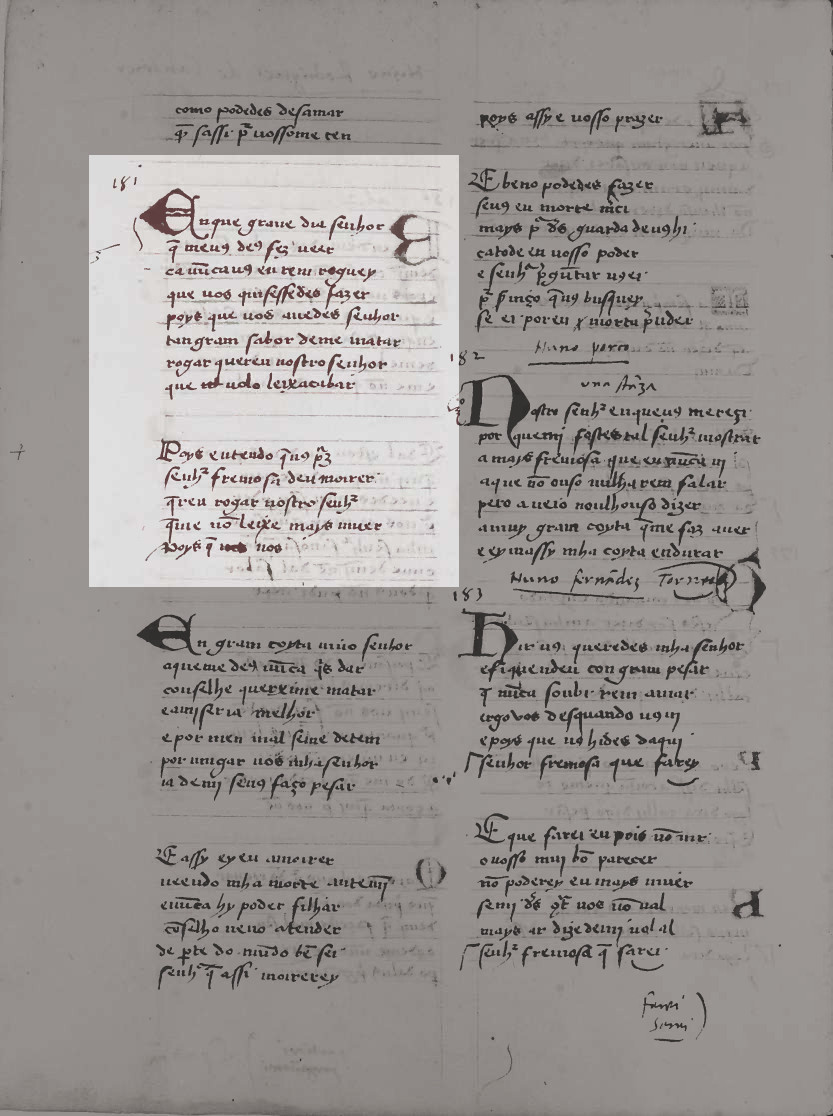 como podedes desamar
q̄ sassi p̃ uossome ten
181
Enque graue dia senhor
q̄ meu9 de9 fez ueer
ca nūcau9 eu rem roguey
que uos quisessedes fazer
poys que uos auedes senhor
tan gram sabor deme matar
rogar quereu nostro senhor
que volo leixe acabar
Poys entendo q̄u9 pz̃
senhr̃ fremosa deu moirer
q̄reu rogar nostro senhr̃
q̄me nō leixe mays uiuer
poys q̄ nos
En gram coyta uiuo senhor
aqueme de9 nūca q̄s dar
conselhe querexime matar
eamiseria melhor
e por meu mal seme detem
por uingar uos mha senhor
ia demj seu9 faço pesar
E assy ey eu amoirer
ueendo mha morte antemj̄
enūca hy poder filhar
cōselho neno atender
de pte do mūdo tē sei
senhr̃ q̄ assi moirerey
poys assy e uosso prazer
E beno podedes fazer
seu9 eu morte mci
mays p̃ ds̄ guardadeu9hi
catodeen uosso poder
e senhr̃ pgūtar u9ei
p̃ s̄uiço q̄u9 busquey
se ei poren x morta p̄nder
182
Nuno porco
una stāza
Nostro senhr̃ enqueu9 mereçi
por quemj festes tal senhr̃ mostrar
a mays fremosa que eu nūca uj
aque nō ouso milha rem falar
pero aueio noulhouso dizer
a muy gram coyta q̄me faz auer
e ey massy mha coyta endurar
Nuno fernādez Torneol
183
Hir u9 queredes mha senhor
e fiquendeu con gram pesar
q̄ nūca soubi rem amar
ergo vos desquando u9 uj
e poys que u9 hides daqui
senhor fremosa que farey
E que farei eu pois nō uir
o uosso mui bō parecer
nō poderey eu mays uiuer
semj ds̄ 9t̃ uos nō val
mays ar dizedemj ual al
senhr̃ fremosa q̄ farei